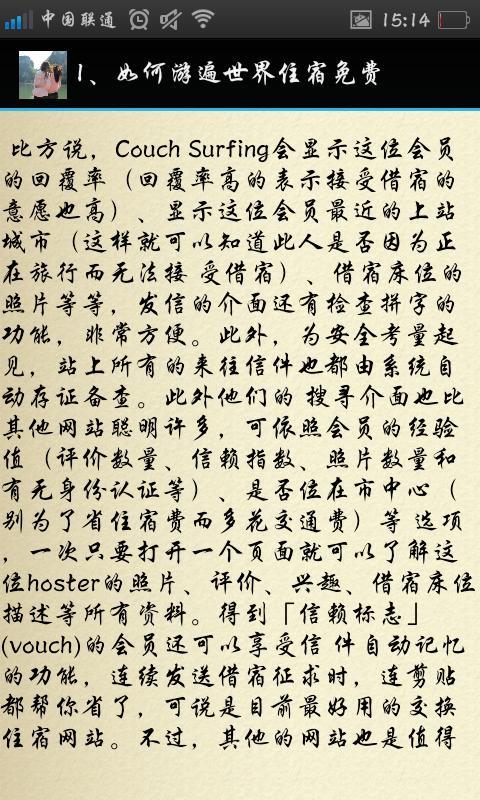 中国联通 15:14
1、如何游遍世界住宿免费
比方说，Couch Surfing会显示这位会员
的回覆率（回覆率高的表示接受借宿的
意愿也高）、显示这位会员最近的上站
城市（这样就可以知道此人是否因为正
在旅行而无法接 受借宿）、借宿床位的
照片等等，发信的介面还有检查拼字的
功能，非常方便。此外，为安全考量起
见，站上所有的来往信件也都由系统自
动存证备查。此外他们的 搜寻介面也比
其他网站聪明许多，可依照会员的经验
值（评价数量、信赖指数、照片数量和
有无身份认证等）、是否位在市中心（
别为了省住宿费而多花交通费）等 选项
，一次只要打开一个页面就可以了解这
位hoster的照片、评价、兴趣、借宿床位
描述等所有资料。得到「信赖标志」
(vouch)的会员还可以享受信 件自动记忆
的功能，连续发送借宿征求时，连剪贴
都帮你省了，可说是目前最好用的交换
住宿网站。不过，其他的网站也是值得